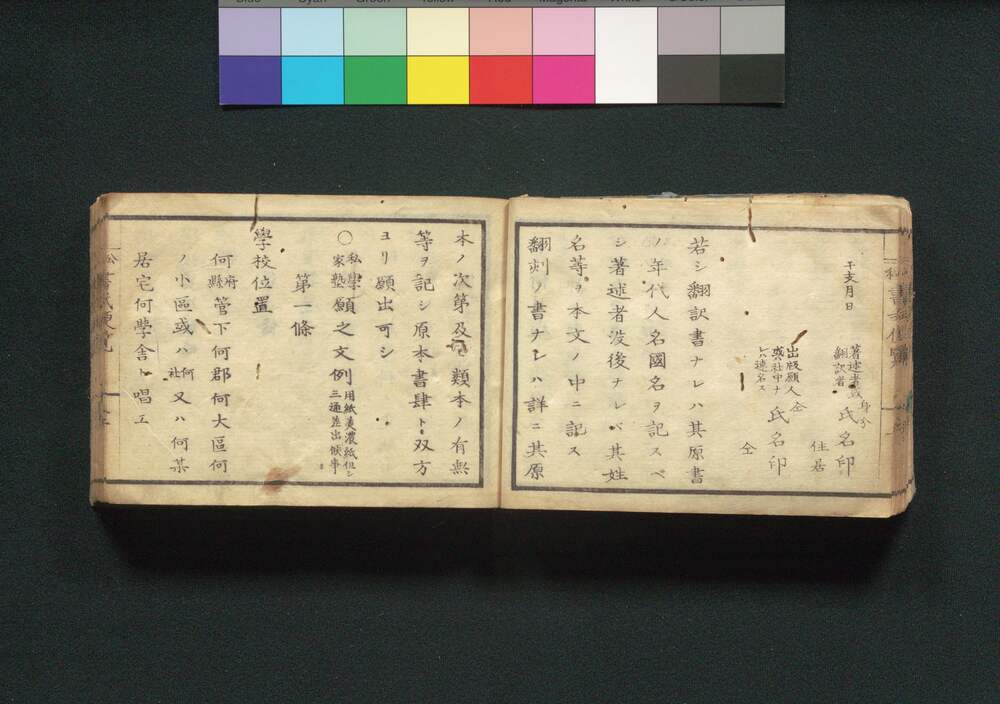 干支月日
著述者或
翻訳者
身分
氏名印
住居
出版願人
或社中ナ
レハ連名ス
仝
氏名印
仝
若シ翻訳書ナレハ其原書
ノ年代人名國名ヲ記スベ
シ著述者没後ナレバ其姓
名等ヲ本文ノ中ニ記ス
翻刻ノ書ナレハ詳ニ其原
本ノ次第及ヒ類本ノ有無
等ヲ記シ原本書肆ト双方
ヨリ願出可シ
○私學
家塾願之文例用紙美濃紙但シ
三通差出候事
第一條
學校位置
何府
縣管下何郡何大區何
ノ小區或ハ何
社又ハ何某
居宅何學舎ト唱エ